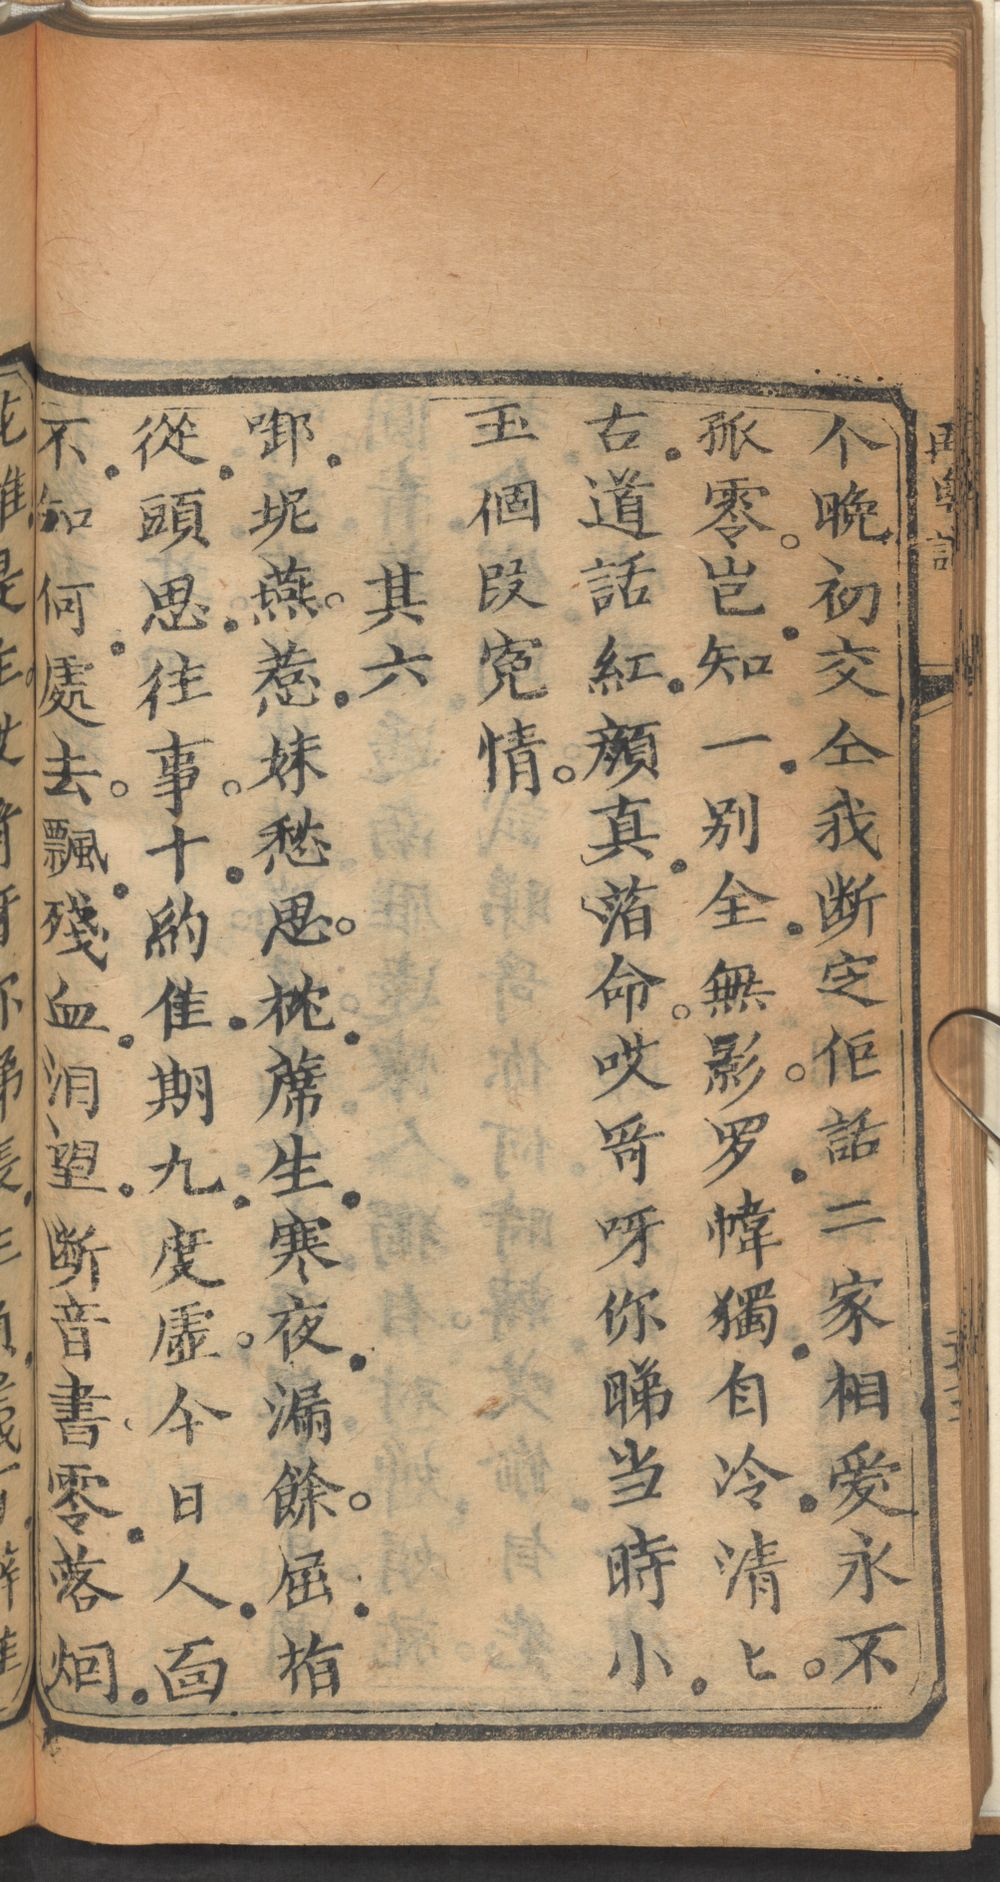 个晚初交仝我断定佢話二家相愛永不
孤零岂知一别全無影罗幃獨自冷清匕
古道話紅顔真落命哎哥呀你睇当時小
玉個段寃情
其六
啣坭燕惹妹愁思枕蓆生寒夜漏餘屈指
從頭思往事十約佳期九度虛今日人面
不知何處去飄殘血泪望断音書零落烟